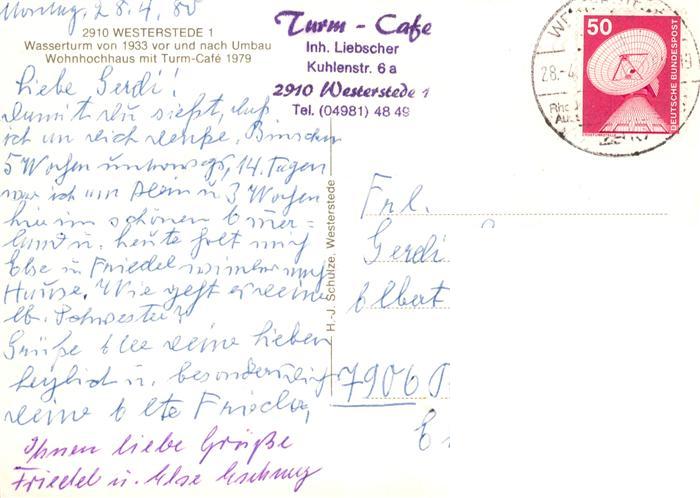 Montag, 28.4.80
2910 WESTERSTEDE 1
Wasserturm von 1933 vor und nach Umbau
Wohnhochhaus mit Turm-Café 1979
Turm - Cafe
Inh. Liebscher
Kuhlenstr. 6 a
2910 Westerstede 1
Tel. (04981) 48 49
50
DEUTSCHE BUNDESPOST
28.-4.
Liebe Gerdi!
Damit Du siehst, daß
ich an Dich denke. Bin schon
5 Wochen unterwegs, 14 Tagen
war ich am Rhein u. 3 Wochen
hier im schönen Ammer=
land u. heute holt mich
Else u. Friedel wieder nach
Hause. Wie geht es Deiner
lb. Schwester?
Grüße Alle Deine Lieben
herzlich u. besonders Dich
Deine Alte Frieda,
Ihnen liebe Grüße
Friedel u. Else
H.-J. Schulze, Westerstede
Frl.
Gerdi
Albert
7906